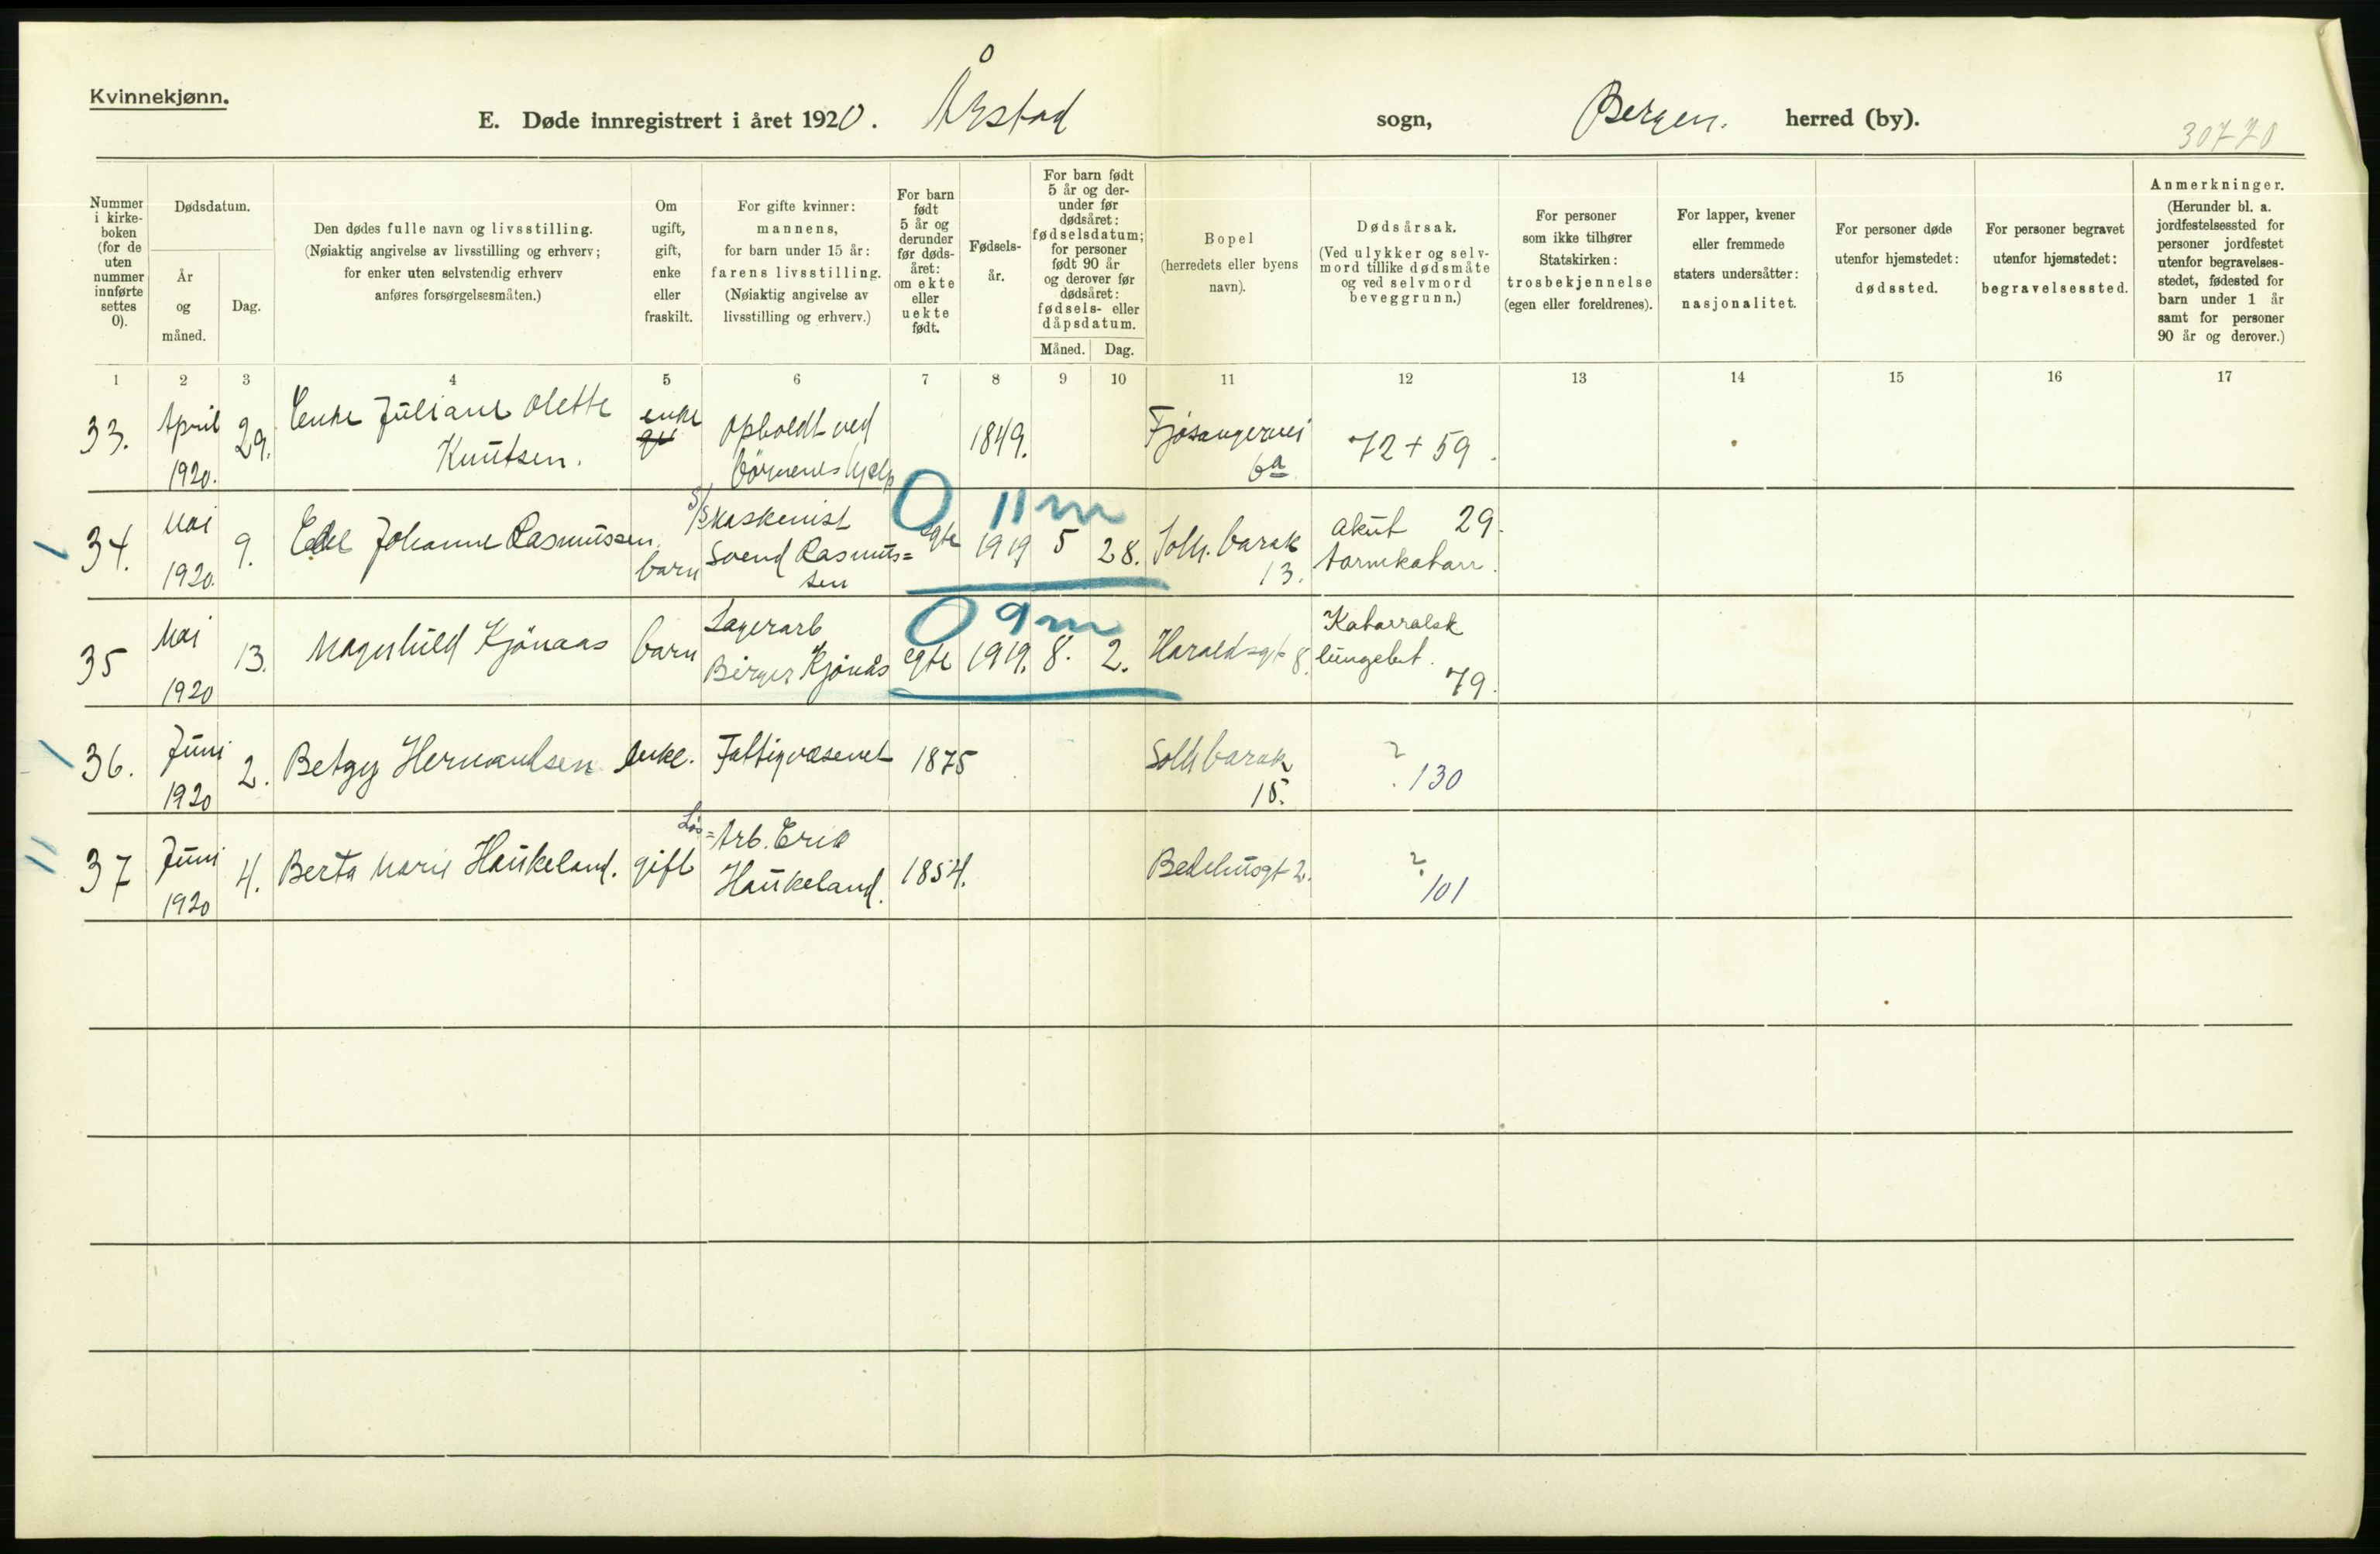 Kvinnekjønn.
E. Døde innregistrert i året 1920. Årstad sogn, Bergen. herred (by).
30770
Nummer i kirke-boken (for de uten nummer innførte settes 0).
Dødsdatum.
År og måned.
Dag.
Den dødes fulle navn og livsstilling.
(Nøiaktig angivelse av livsstilling og erhverv;
for enker uten selvstendig erhverv
anføres forsørgelsesmåten.)
Om ugift, gift, enke eller fraskilt.
For gifte kvinner:
mannens,
for barn under 15 år:
farens livsstilling.
(Nøiaktig angivelse av
livsstilling og erhverv.)
For barn født 5 år og derunder før døds-året: om ekte eller uekte født.
Fødsels-år.
For barn født 5 år og der-under før dødsåret: fødselsdatum; for personer født 90 år og derover før dødsåret: fødsels- eller dåpsdatum.
Måned.
Dag.
Bopel
(herredets eller byens
navn).
Dødsårsak.
(Ved ulykker og selv-
mord tillike dødsmåte
og ved selvmord
beveggrunn.)
For personer
som ikke tilhører
Statskirken:
trosbekjennelse
(egen eller foreldrenes).
For lapper, kvener
eller fremmede
staters undersåtter:
nasjonalitet.
For personer døde
utenfor hjemstedet:
dødssted.
For personer begravet
utenfor hjemstedet:
begravelsessted.
Anmerkninger.
(Herunder bl. a.
jordfestelsessted for
personer jordfestet
utenfor begravelses-
stedet, fødested for
barn under 1 år
samt for personer
90 år og derover.)
1 2 3 4 5 6 7 8 9 10 11 12 13 14 15 16 17
33. April 1920. 29. Enke Juliane Olette Knutsen. enke Opholdt ved börnenes hjelp 1849. Fjøsangervei 6a 72 + 59.
0 11 m
34. Mai 1920. 9. Edel Johanne Rasmussen. barn S/S Maskinist Svend Rasmus=sen egte 1919 5 28. Solh. barak 13. akut tarmkatarr. 29.
0 9 m
35 Mai 1920 13. Magnhild Kjönaas barn Lagerarb Birger Kjönås egte 1919. 8. 2. Haraldsgt 8. Katarralsk lungebet. 79.
36. Juni 1920 2. Betzy Hermandsen enke. Fattigvæsenet 1875 Solh barak 15. ? 130
37 Juni 1920 4. Berta Marie Haukeland. gift Løs=Arb. Erik Haukeland. 1854. Bedehusgt 2. ? 101